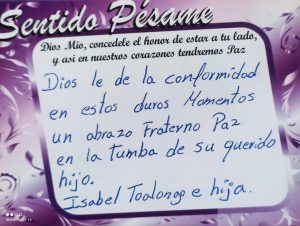 Sentido Pésame
Dios Mio, concedele el honor de estar a tu lado,
y asi en nuestros corazones tendremos Paz
Dios le de la conformidad
en estos duros Momentos
un abrazo Fraterno Paz
en la tumba de su querido
hijo.
Isabel Toalongo e hija.